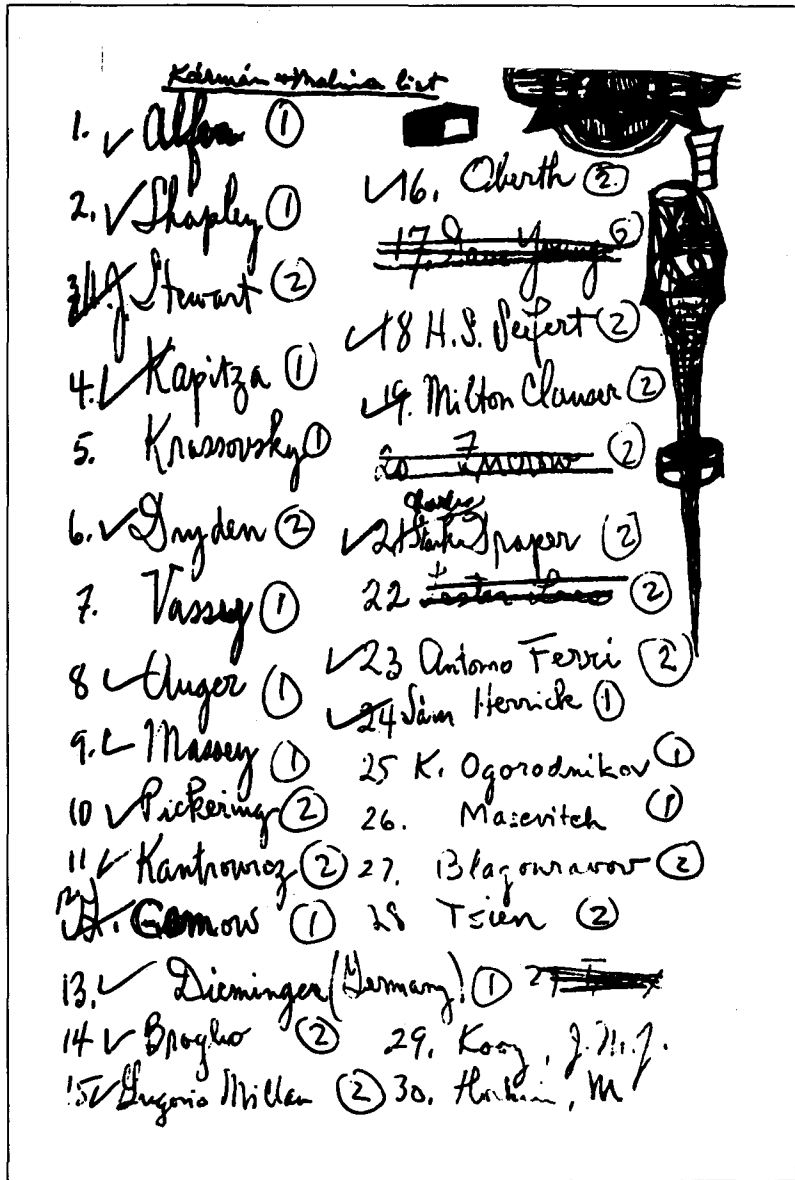 Kármán + Malina list
1. ✓ Alfven ①
2. ✓ Shapley ①
3. J. Stewart ②
4. ✓ Kapitza ①
5. Krassovsky ①
6. ✓ Dryden ②
7. Vassey ①
8 ✓ Auger ①
9. ✓ Massey ①
10 ✓ Pickering ②
11 ✓ Kantrowicz ②
12. Gamow ①
13. ✓ Dieminger (Germany) ①
14 ✓ Broglio ②
15 ✓ Gregorio Millan ②
✓ 16. Oberth ②
17. Young ②
✓ 18 H.S. Seifert ②
✓ 19. Milton Clauser ②
20 ②
Charles
✓ 21 Stark Draper ②
22 Lester Lees ②
✓ 23 Antonio Ferri ②
✓ 24 Sam Herrick ①
25 K. Ogorodnikov ①
26. Masevitch ①
27. Blagonravov ②
28 Tsien ②
29. Kooy, J.M.J.
30. M